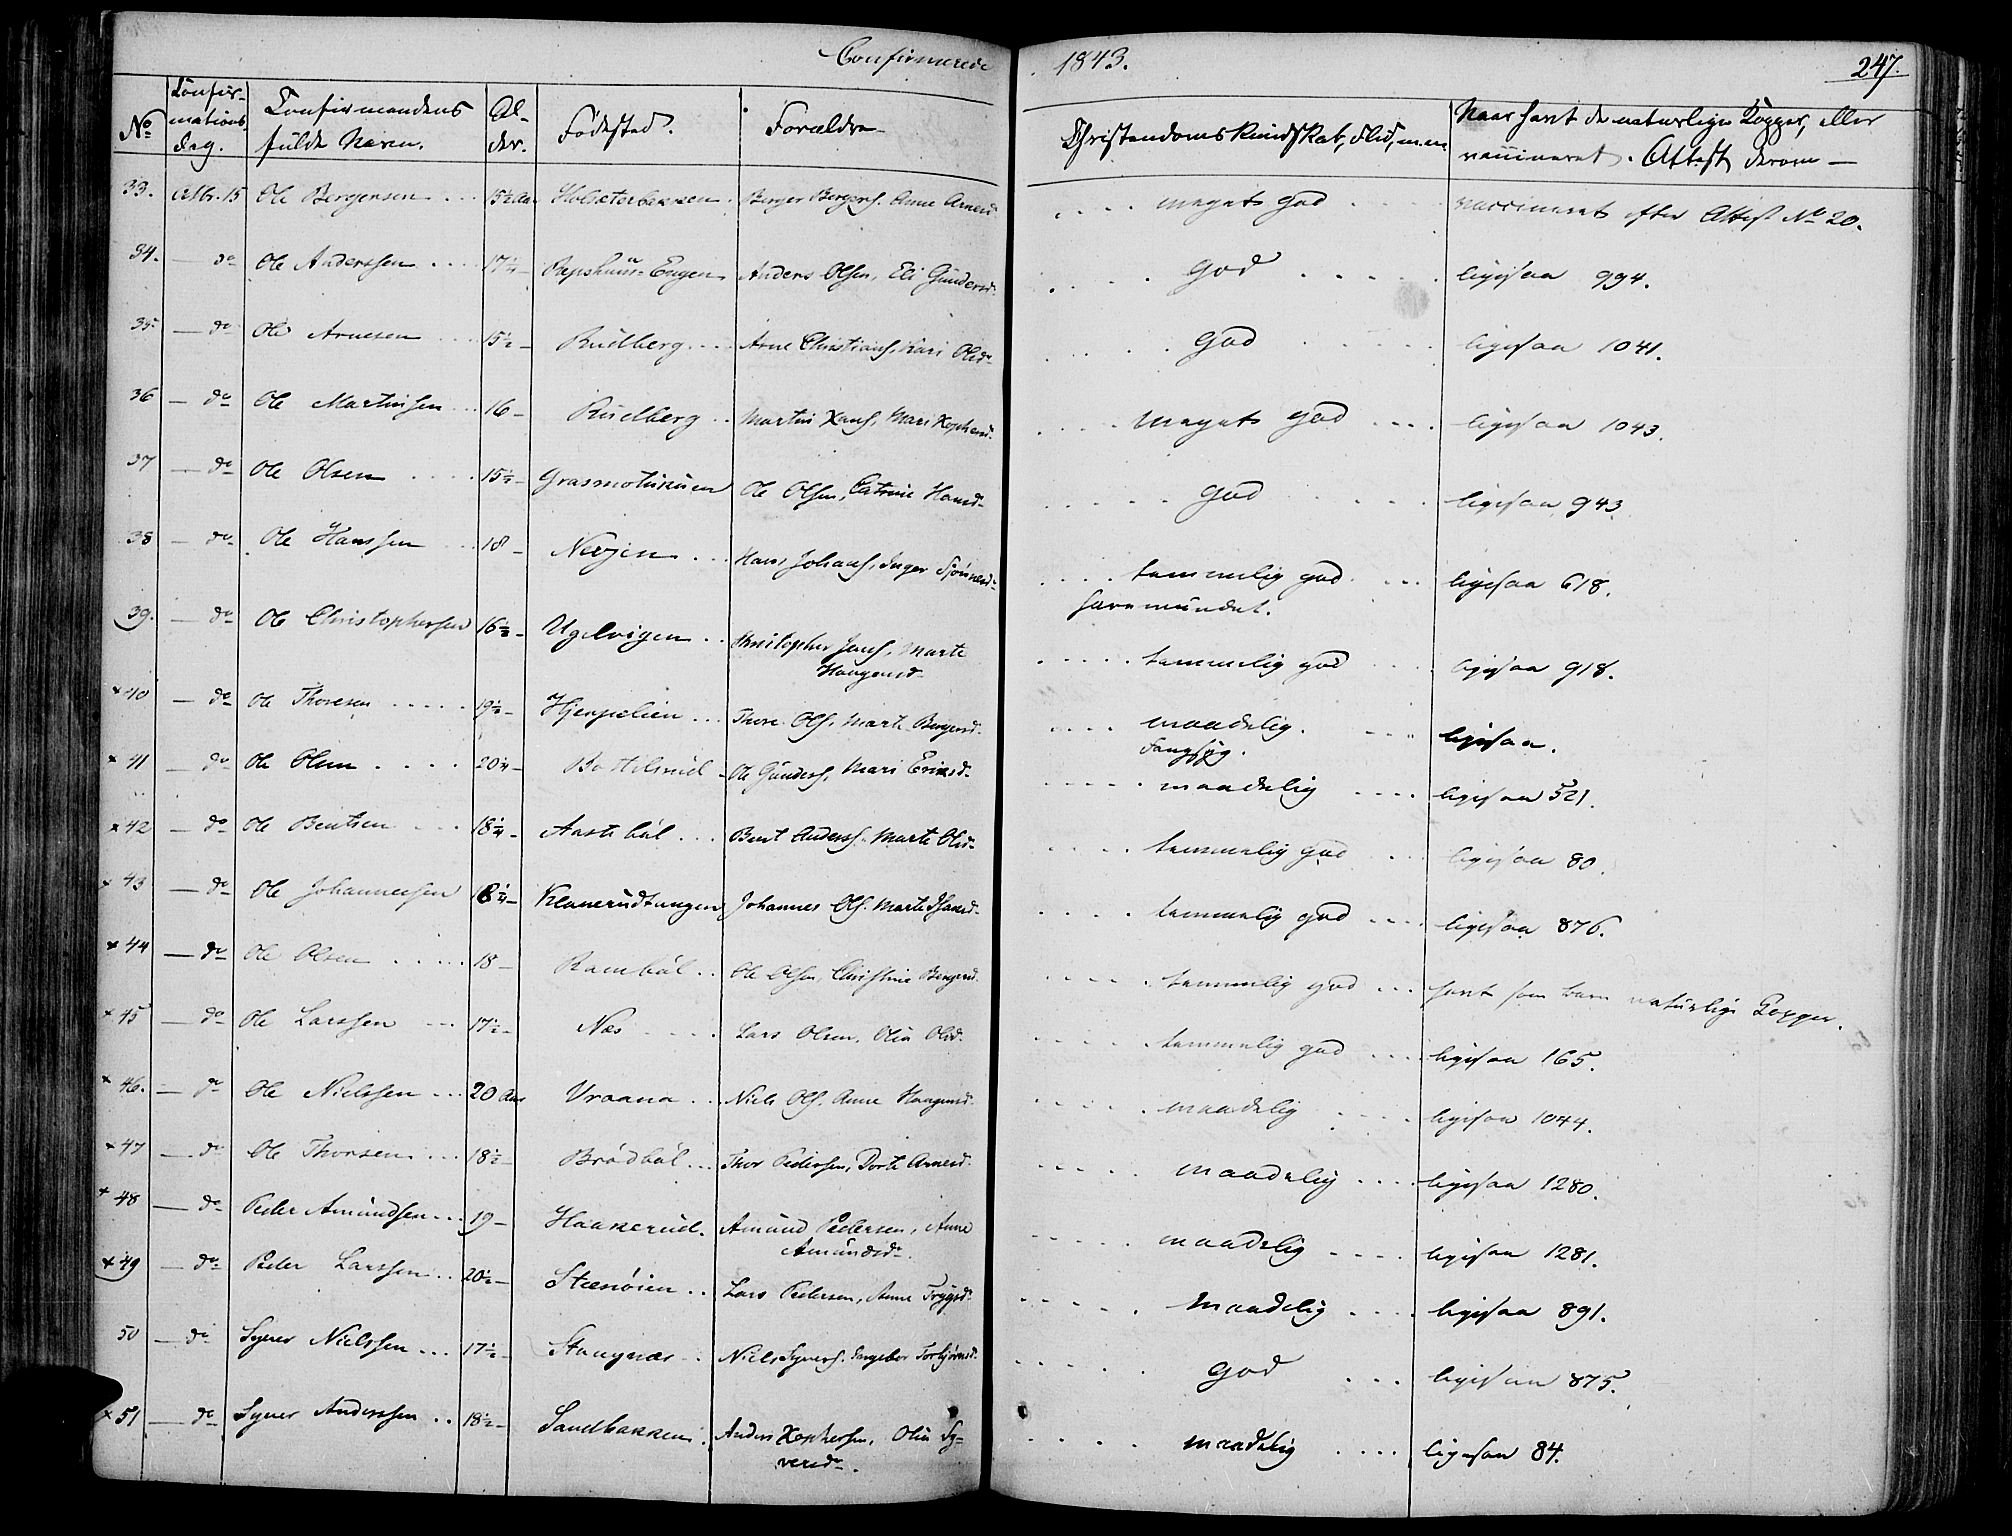 Confirmerede 1843. 247.
No Confirmations Dag. Confirmandens fulde Navn. Alder. Fødested. Forældre Christendoms Kundskab, Flid, m.m. Naar havt de naturlige Kopper, eller vaccineret. Attest derom
33. Octbr. 15 Ole Bergersen 15½ Aar Holsæterbakken Berger Bergers. Anne Arnesd. meget god vaccineret efter Attest No 20.
34. do Ole Anderssen 17¼ Engen Anders Olsen, Eli Gundersd. god ligesaa 994.
35. do Ole Arnesen 15½ Rudberg Arne Christians. Kari Olsd. god ligesaa 1041.
36 do Ole Martinsen 16 Rudberg Martin Hans. Mari Xophersd. meget god ligesaa 1043.
37 do Ole Olsen 15½ Ole Olsen, Catrine Hansd. god ligesaa 943
38 do Ole Hanssen 18 Hans Johans. Inger temmelig god ligesaa 618.
39. do Ole Christophersen 16½ Ugelvigen Christopher Jens. Marte
Haagensd. temmelig god ligesaa 918.
+ 40 do Ole Thoresen 19½ Hjerpelien Thore Ols. Marte Bergersd. maadelig. ligesaa.
+ 41 do Ole Olsen 20¼ Ole Gunders. Mari Eriksd. maadelig ligesaa 521.
+ 42 do Ole Bentsen 18¼ Aastebøl Bent Anders. Marte Olsd. temmelig god ligesaa 80.
+ 43 do Ole Johannessen 18¼ Klanerudtangen Johannes Ols. Marte temmelig god ligesaa 876.
+ 44 do Ole Olsen 18 Rambøl Ole Olsen, Christine Bergersd. temmelig god havt som barn naturlige Kopper.
+ 45 do Ole Larssen 17½ Næs Lars Olsen, Olia Olsd. temmelig god ligesaa 165.
+ 46. do Ole Nielssen 20 Aar Vraana Niels Ols. Anne Haagensd. maadelig ligesaa 1044.
+ 47 do Ole Thorsen 18½ Brødbøl Thor Pedersen, Dorte Arnesd. maadelig ligesaa 1280.
+ 48 do Peder Amundsen 19 Haakerud. Amund Pedersen, Anne
Amundsd. maadelig ligesaa 1281.
+ 49 do Peder Larssen 20½ Stenøien Lars Pedersen, Anne Trygsd. Maadelig ligesaa 891.
50 do Syver Nielssen 17½ Stangnæs Niels Syvers. Ingebor Torbjørnsd. god ligesaa 875.
+ 51 do Syver Anderssen 18½ Sandbakken Anders Xophersen, Olia Sy=
versd. maadelig ligesaa 84.